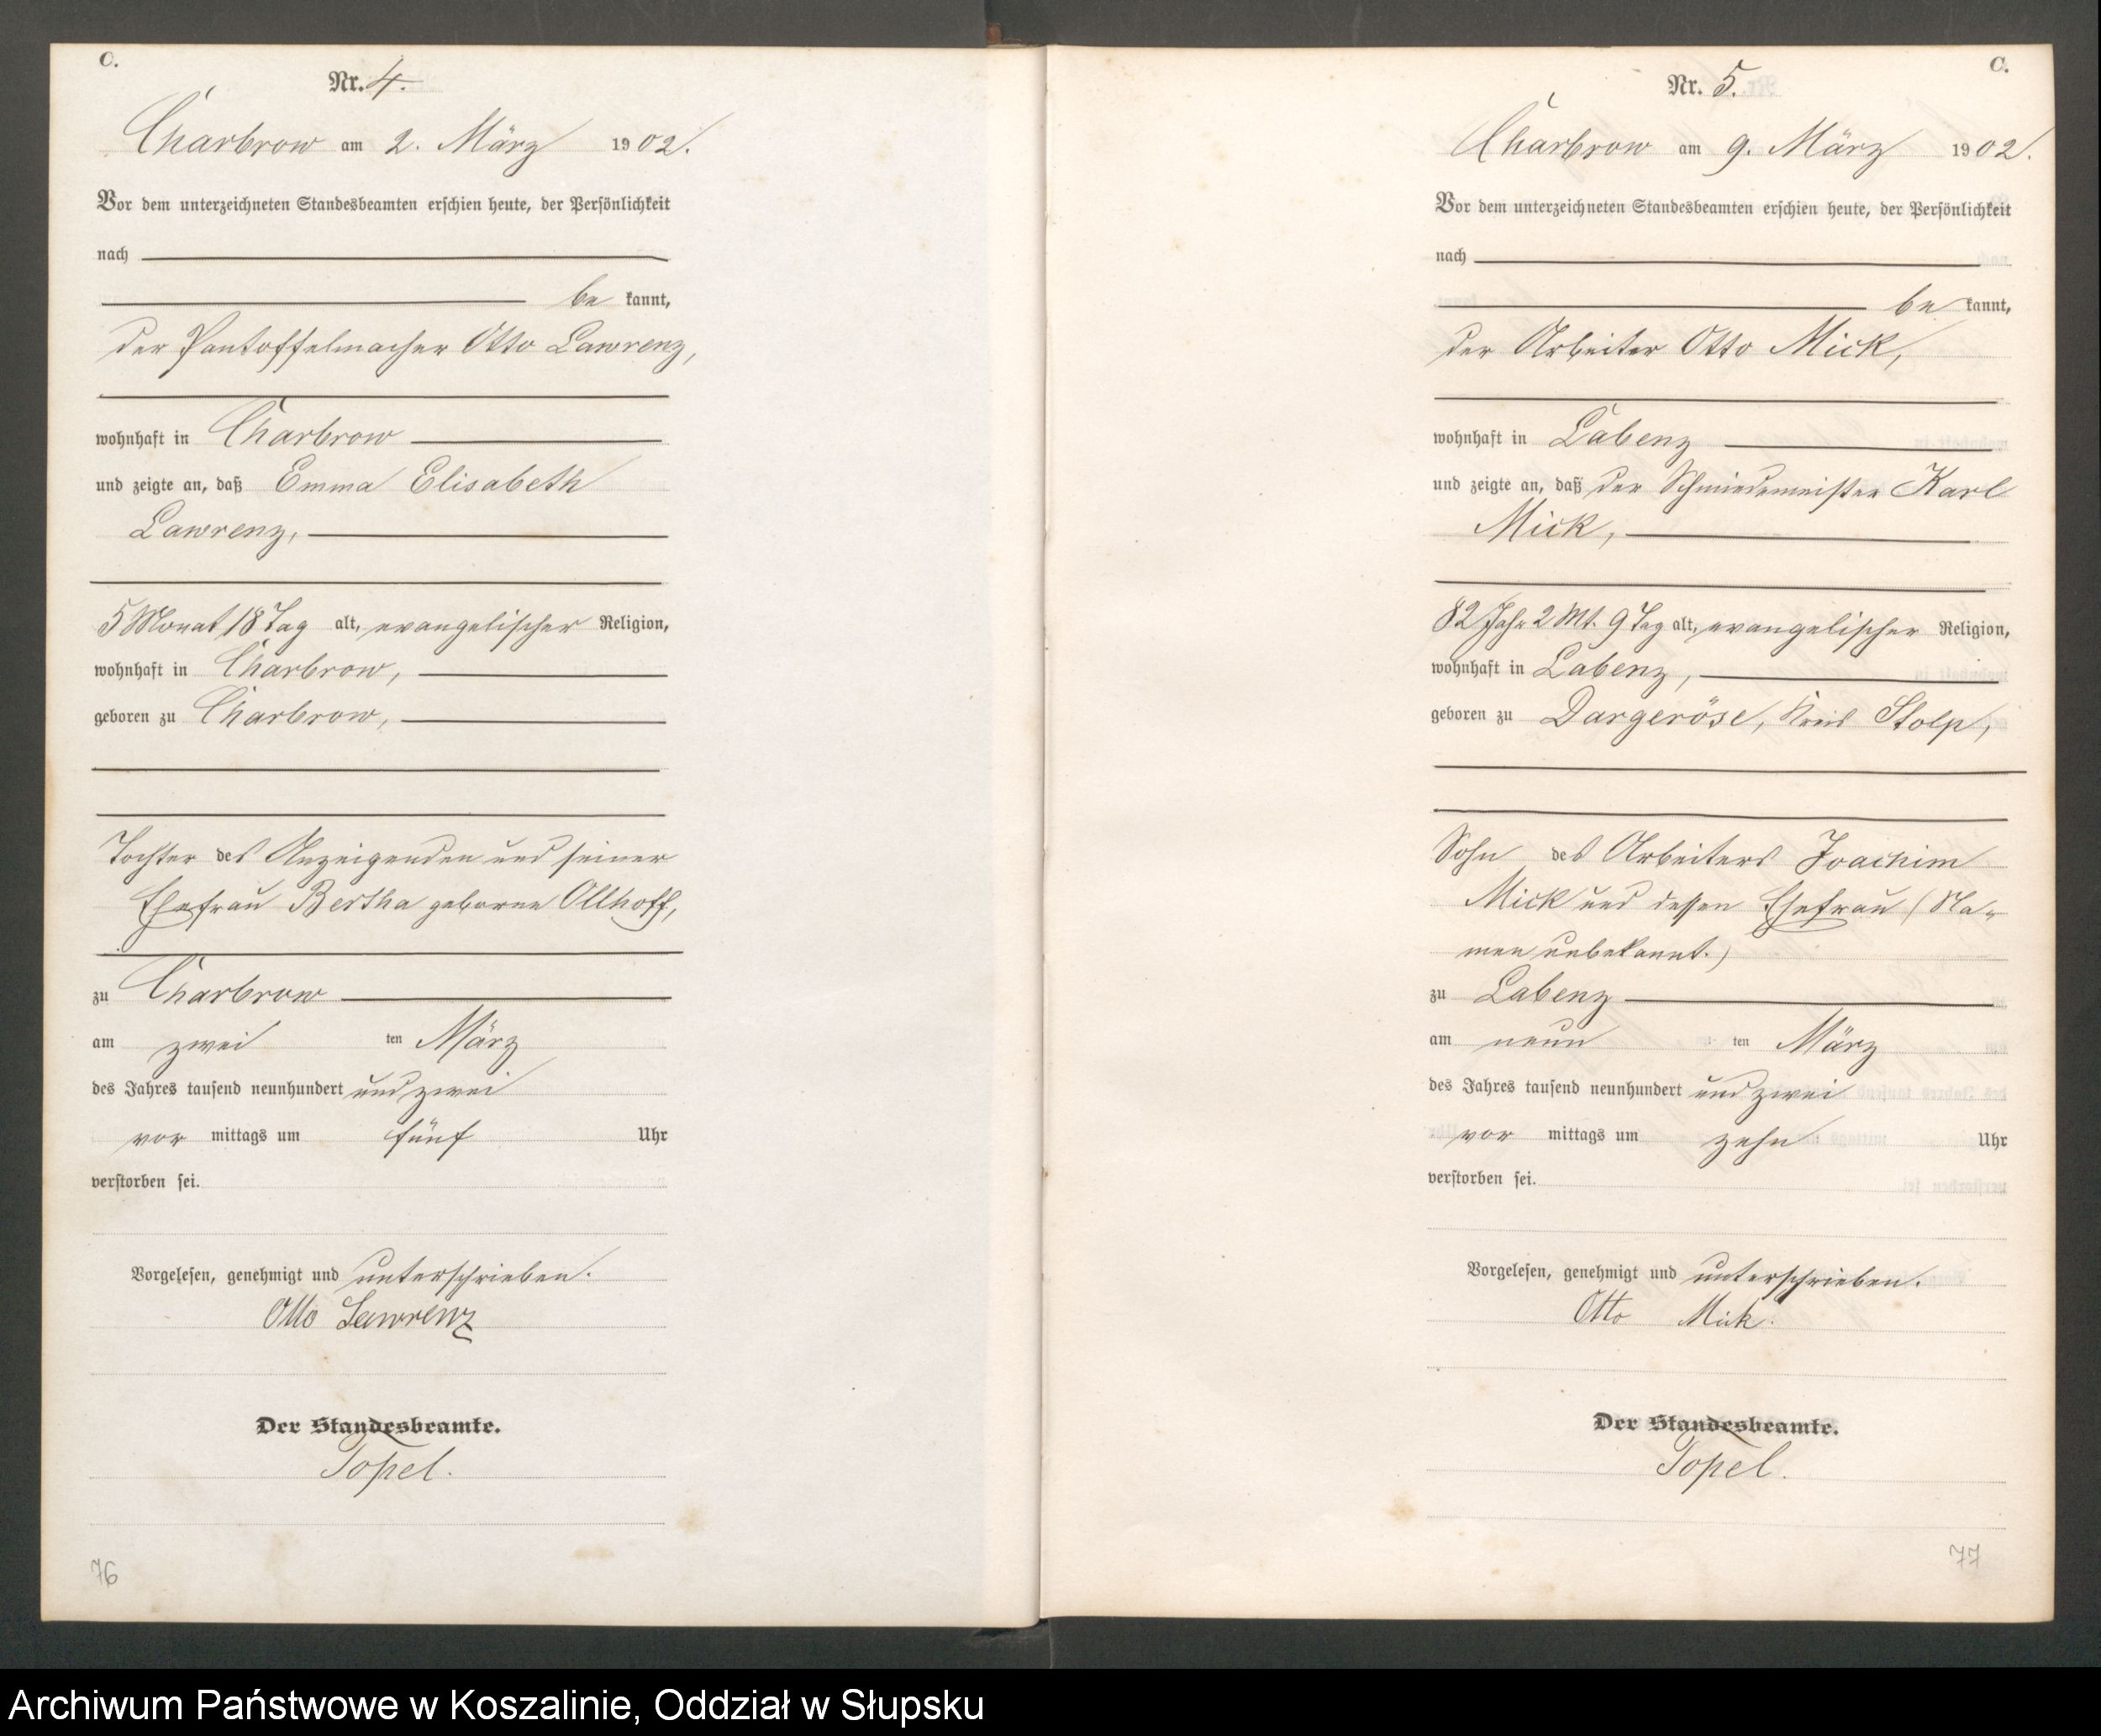 C.
Nr. 4.
Charbrow am 2. März 1902.
Vor dem unterzeichneten Standesbeamten erschien heute, der Persönlichkeit
nach
be kannt,
der Pantoffelmacher Otto Lawrenz,
wohnhaft in Charbrow
und zeigte an, daß Emma Elisabeth
Lawrenz,
5 Monat 18 Tag alt, evangelischer Religion,
wohnhaft in Charbrow,
geboren zu Charbrow,
Tochter des Anzeigenden und seiner
Ehefrau Bertha geborne Ollhoff,
zu Charbrow
am zwei ten März
des Jahres tausend neunhundert und zwei
vor mittags um fünf Uhr
verstorben sei.
Vorgelesen, genehmigt und unterschrieben.
Otto Lawrenz
Der Standesbeamte.
Topel.
76
C.
Nr. 5.
Charbrow am 9. März 1902.
Vor dem unterzeichneten Standesbeamten erschien heute, der Persönlichkeit
nach
be kannt,
der Arbeiter Otto Mick,
wohnhaft in Labenz
und zeigte an, daß der Schmiedemeister Karl
Mick,
82 Jahr 2 Mt. 9 Tag alt, evangelischer Religion,
wohnhaft in Labenz,
geboren zu Dargeröse, Kreis Stolp,
Sohn des Arbeiters Joachim
Mick und dessen Ehefrau (Na-
men unbekannt.)
zu Labenz
am neun ten März
des Jahres tausend neunhundert und zwei
vor mittags um zehn Uhr
verstorben sei.
Vorgelesen, genehmigt und unterschrieben.
Otto Mick.
Der Standesbeamte.
Topel.
77
Archiwum Państwowe w Koszalinie, Oddział w Słupsku